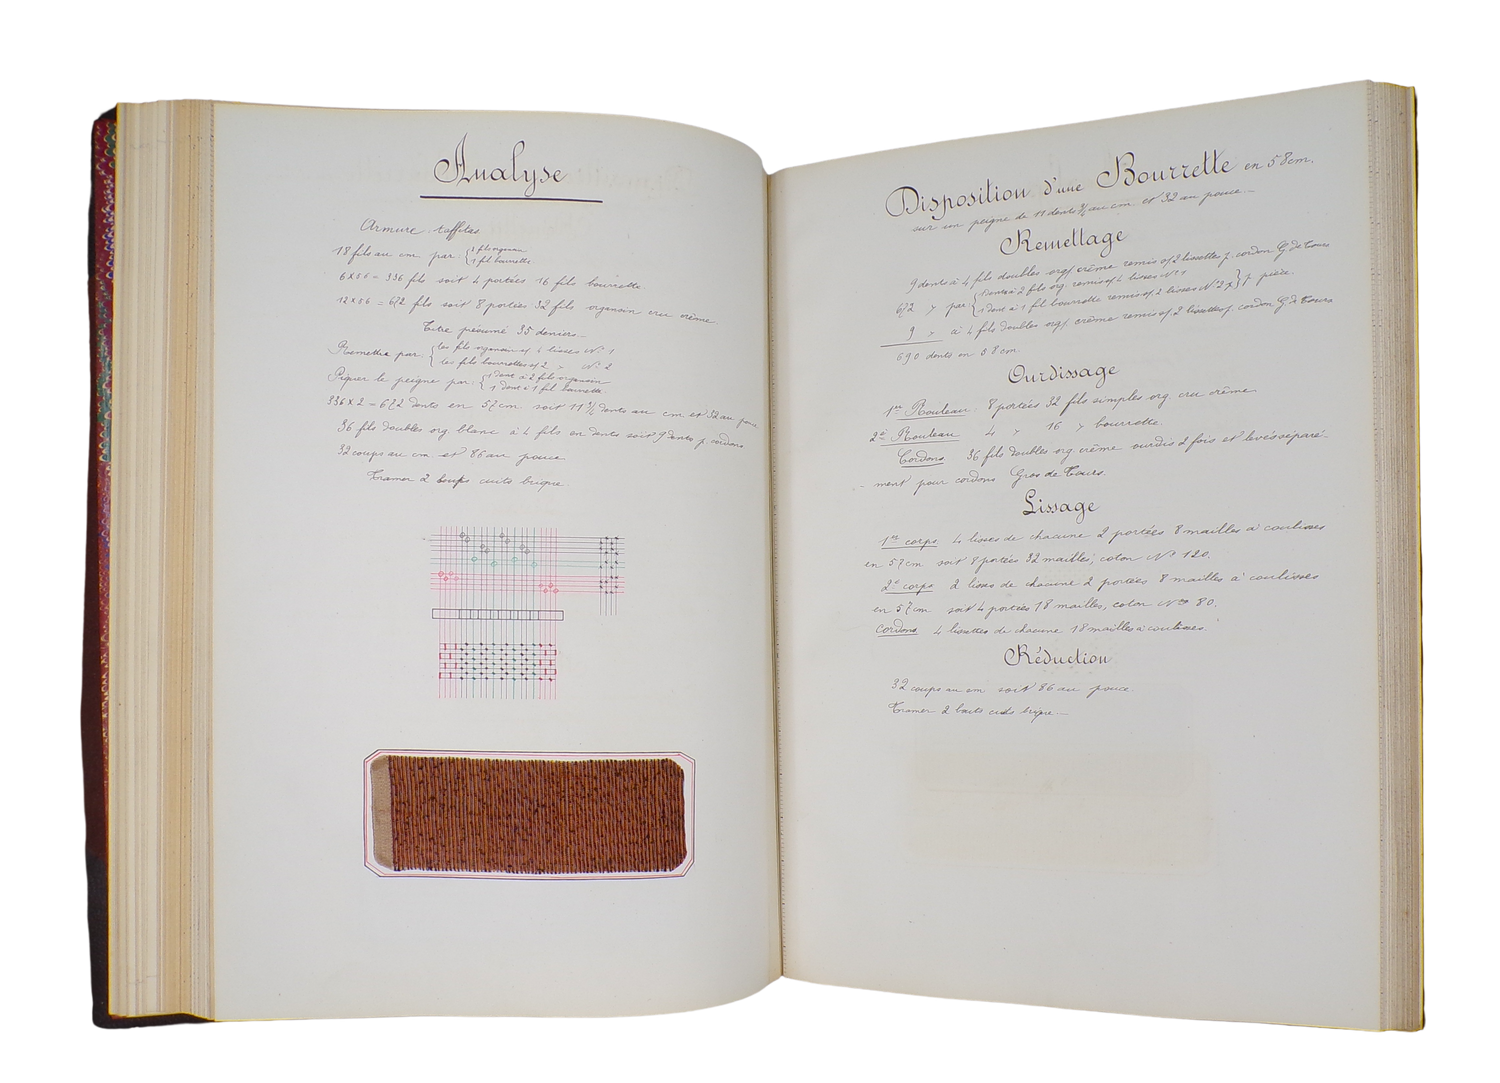 Analyse
Armure: taffetas
18 fils au cm par: { 2 fils organsin
1 fil bourrette
6 x 56 = 336 fils soit 4 portées 16 fils bourrette
12 x 56 = 672 fils soit 8 portées 32 fils organsin cru crême
Titre présumé 35 deniers
Remettre par: { les fils organsin s/ 4 lisses N° 1
les fils bourrettes s/ 2 » N° 2
Piquer le peigne par: { 1 dent à 2 fils organsin
1 dent à 1 fil bourrette
336 x 2 = 672 dents en 57 cm soit 11 3/4 dents au cm et 32 au pouce
36 fils doubles org. blanc à 4 fils en dents soit 9 dents p. cordons
32 coups au cm et 86 au pouce
Tramer 2 bouts cuits brique
Disposition d'une Bourrette en 58 cm.
sur un peigne de 11 dents 3/4 au cm et 32 au pouce
Remettage
9 dents à 4 fils doubles org/ crême remis s/ 2 lissettes p. cordon G. de Tours
672 » par { 1 dent à 2 fils org. remis s/ 4 lisses N° 1
1 dent à 1 fil bourrette remis s/ 2 lisses N° 2 } p. pièce.
9 » à 4 fils doubles org/ crême remis s/ 2 lissettes p. cordon G. de Tours
690 dents en 58 cm
Ourdissage
1er Rouleau: 8 portées 32 fils simples org. cru crême
2e Rouleau 4 » 16 » bourrette
Cordons 36 fils doubles org crême ourdis 2 fois et levés séparé-
ment pour cordons Gros de Tours.
Lissage
1er corps 4 lisses de chacune 2 portées 8 mailles à coulisses
en 57 cm soit 8 portées 32 mailles, coton N° 120.
2e corps 2 lisses de chacune 2 portées 8 mailles à coulisses
en 57 cm soit 4 portées 18 mailles, coton N° 80.
Cordons 4 lissettes de chacune 18 mailles à coulisses.
Réduction
32 coups au cm soit 86 au pouce
Tramer 2 bouts cuits brique